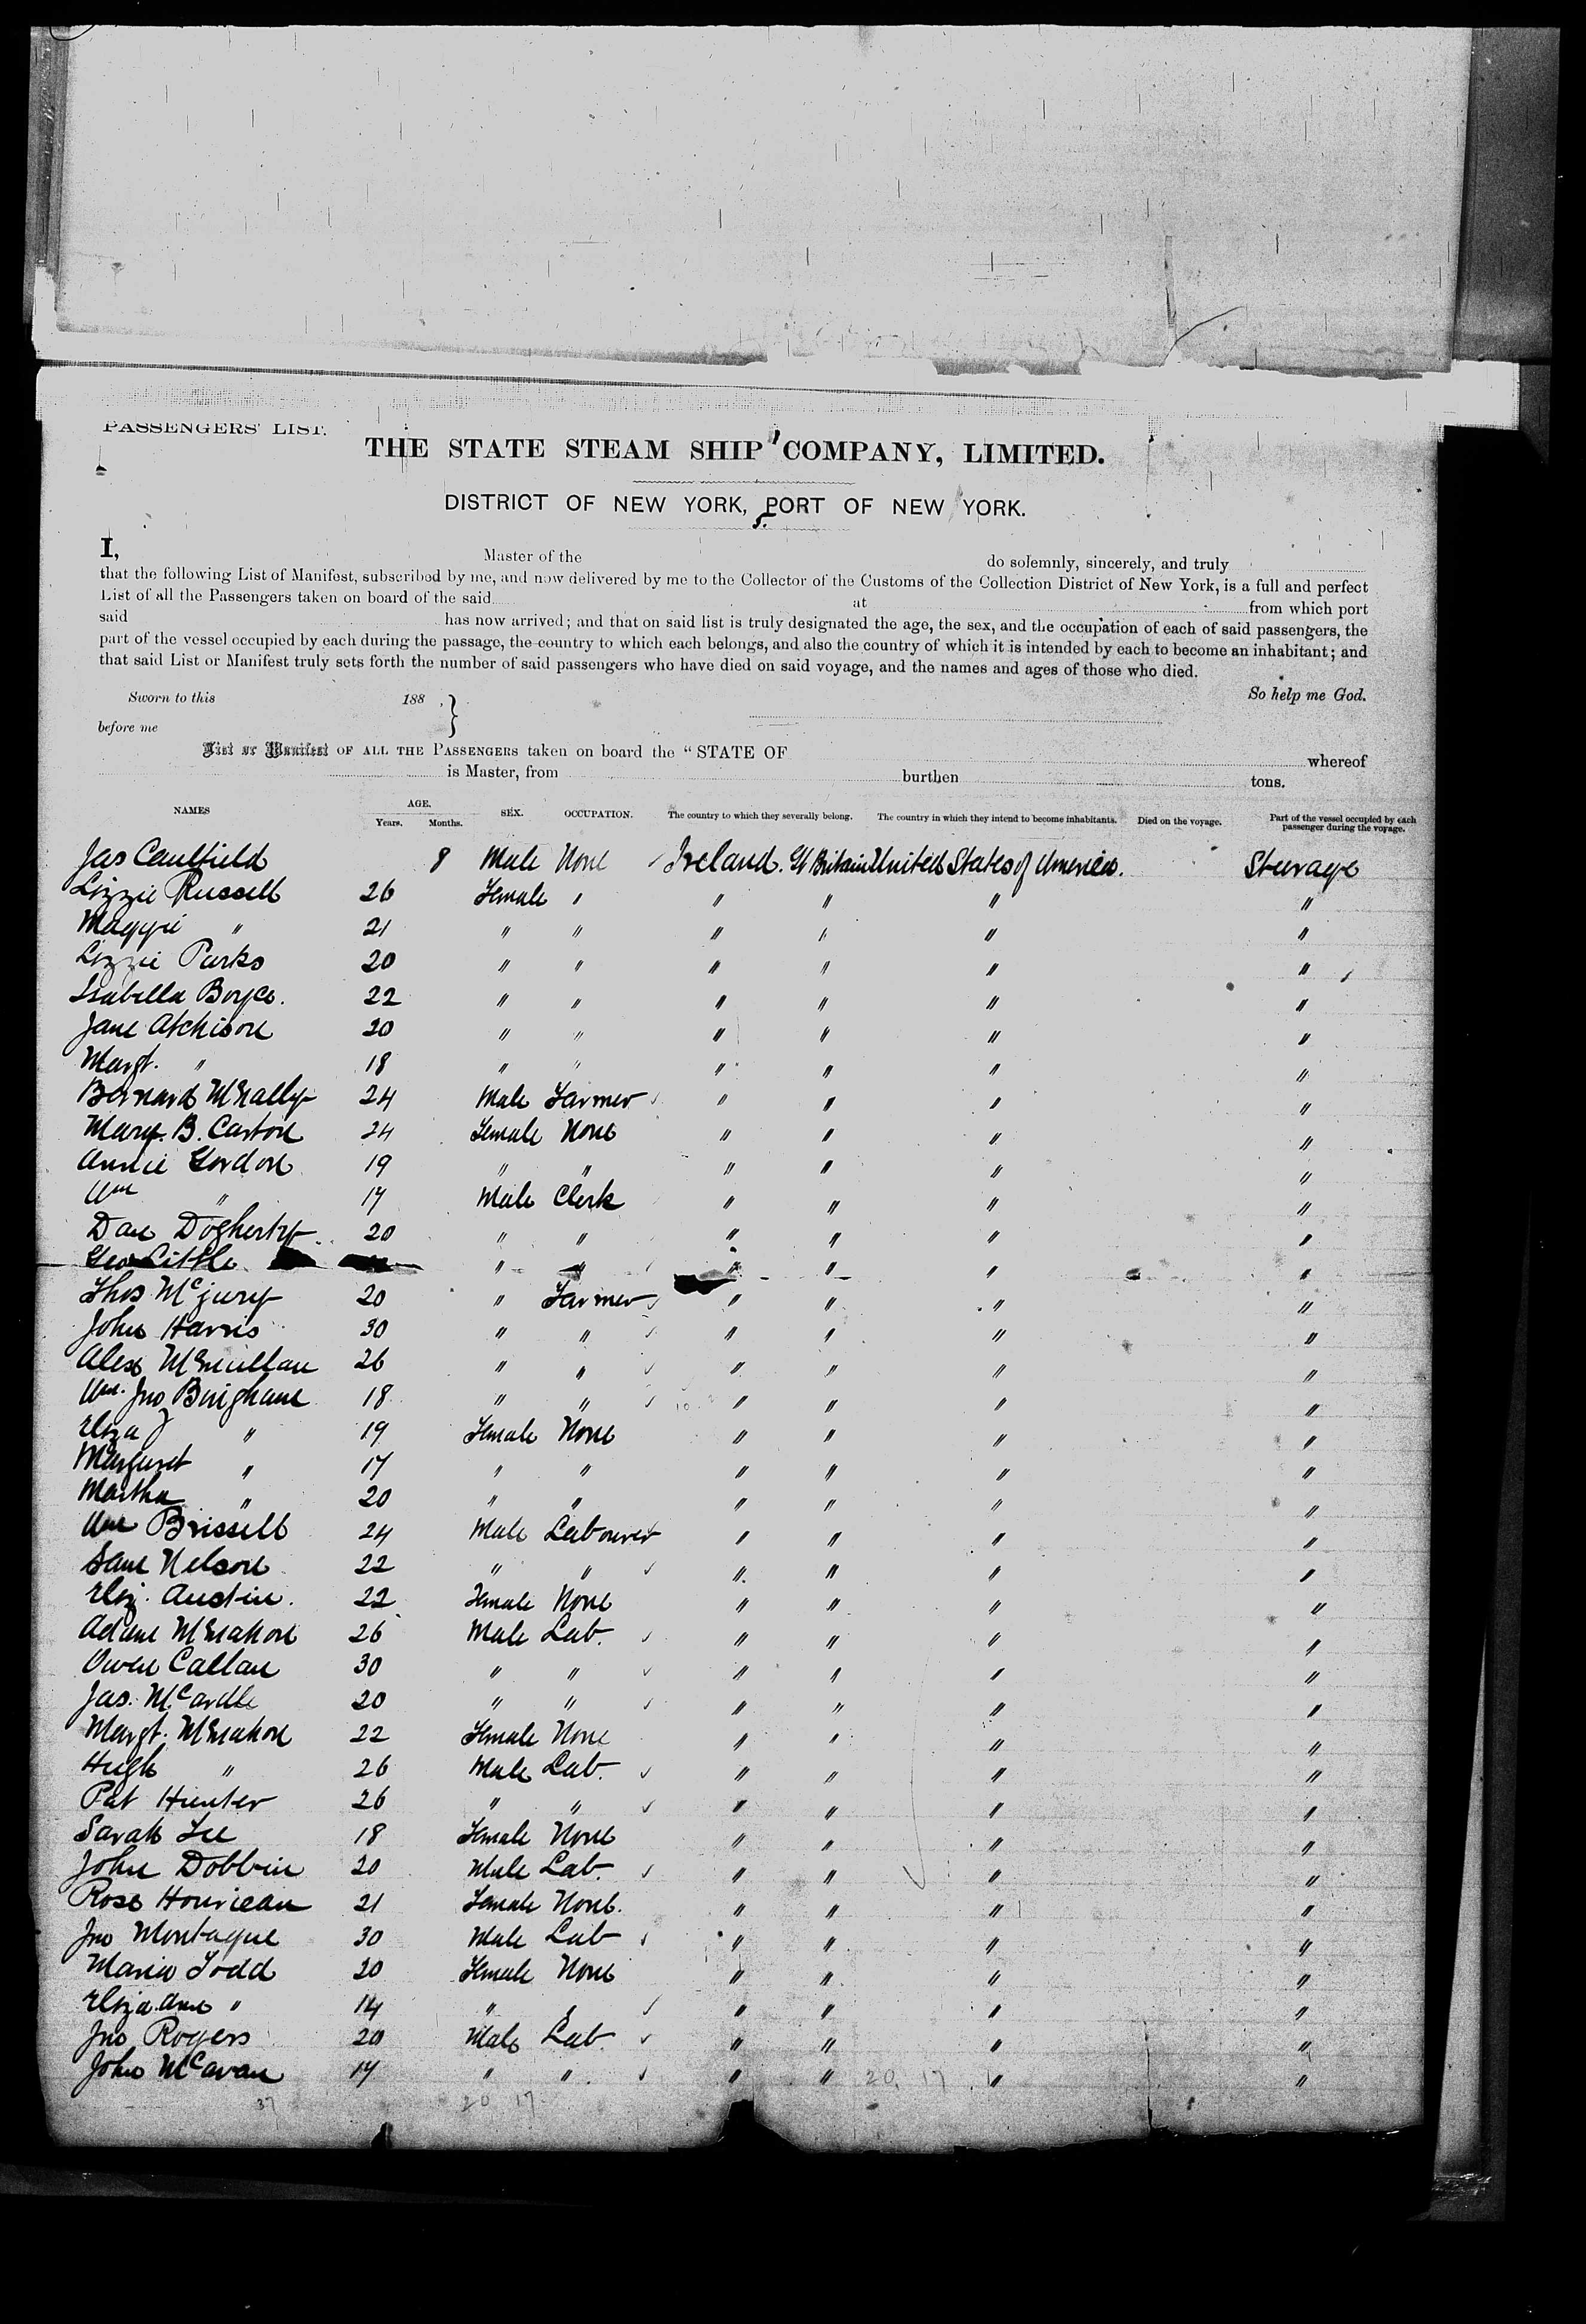 PASSENGERS' LIST.
THE STATE STEAM SHIP COMPANY, LIMITED.
DISTRICT OF NEW YORK, PORT OF NEW YORK.
5.
I, Master of the do solemnly, sincerely, and truly
that the following List of Manifest, subscribed by me, and now delivered by me to the Collector of the Customs of the Collection District of New York, is a full and perfect
List of all the Passengers taken on board of the said at from which port
said has now arrived; and that on said list is truly designated the age, the sex, and the occupation of each of said passengers, the
part of the vessel occupied by each during the passage, the country to which each belongs, and also the country of which it is intended by each to become an inhabitant; and
that said List or Manifest truly sets forth the number of said passengers who have died on said voyage, and the names and ages of those who died.
Sworn to this 188 , } So help me God.
before me
List or Manifest OF ALL THE PASSENGERS taken on board the "STATE OF whereof
is Master, from burthen tons.
NAMES AGE. Years. Months. SEX. OCCUPATION. The country to which they severally belong. The country in which they intend to become inhabitants. Died on the voyage. Part of the vessel occupied by each passenger during the voyage.
Jas Caulfield 8 Male None Ireland. Gt Britain United States of America. Steerage
Lizzie Russell 26 Female " " " " "
Maggie " 21 " " " " " "
Lizzie Parks 20 " " " " " "
Isabella Boyce. 22 " " " " " "
Jane Atchison 20 " " " " " "
Margt. " 18 " " " " " "
Bernard McNally 24 Male Farmer " " " "
Mary. B. Carton 24 Female None " " " "
Annie Gordon 19 " " " " " "
Wm " 17 Male Clerk " " " "
Dan Dogherty 20 " " " " " "
Geo Little " " " " " "
Thos McJury 20 " Farmer " " " "
John Harris 30 " " " " " "
Alex McMullan 26 " " " " " "
Wm. Jno Bingham 18 " " " " " "
Eliza J " 19 Female None " " " "
Margaret " 17 " " " " " "
Martha " 20 " " " " " "
Wm Brissell 24 Male Labourer " " " "
Sam Nelson 22 " " " " " "
Eliz. Austin. 22 Female None " " " "
Adam McMahon 26 Male Lab. " " " "
Owen Callan 30 " " " " " "
Jas. McArdle 20 " " " " " "
Margt. McMahon 22 Female None " " " "
Hugh " 26 Male Lab. " " " "
Pat Hunter 26 " " " " " "
Sarah Lee 18 Female None " " " "
John Dobbin 20 Male Lab. " " " "
Rose Hourican 21 Female None. " " " "
Jno Montague 30 Male Lab " " " "
Maria Todd 20 Female None " " " "
Eliza Ann " 14 " " " " " "
Jno Rogers 20 Male Lab. " " " "
John McAvan 17 " " " " " "
37 20 17 20 17